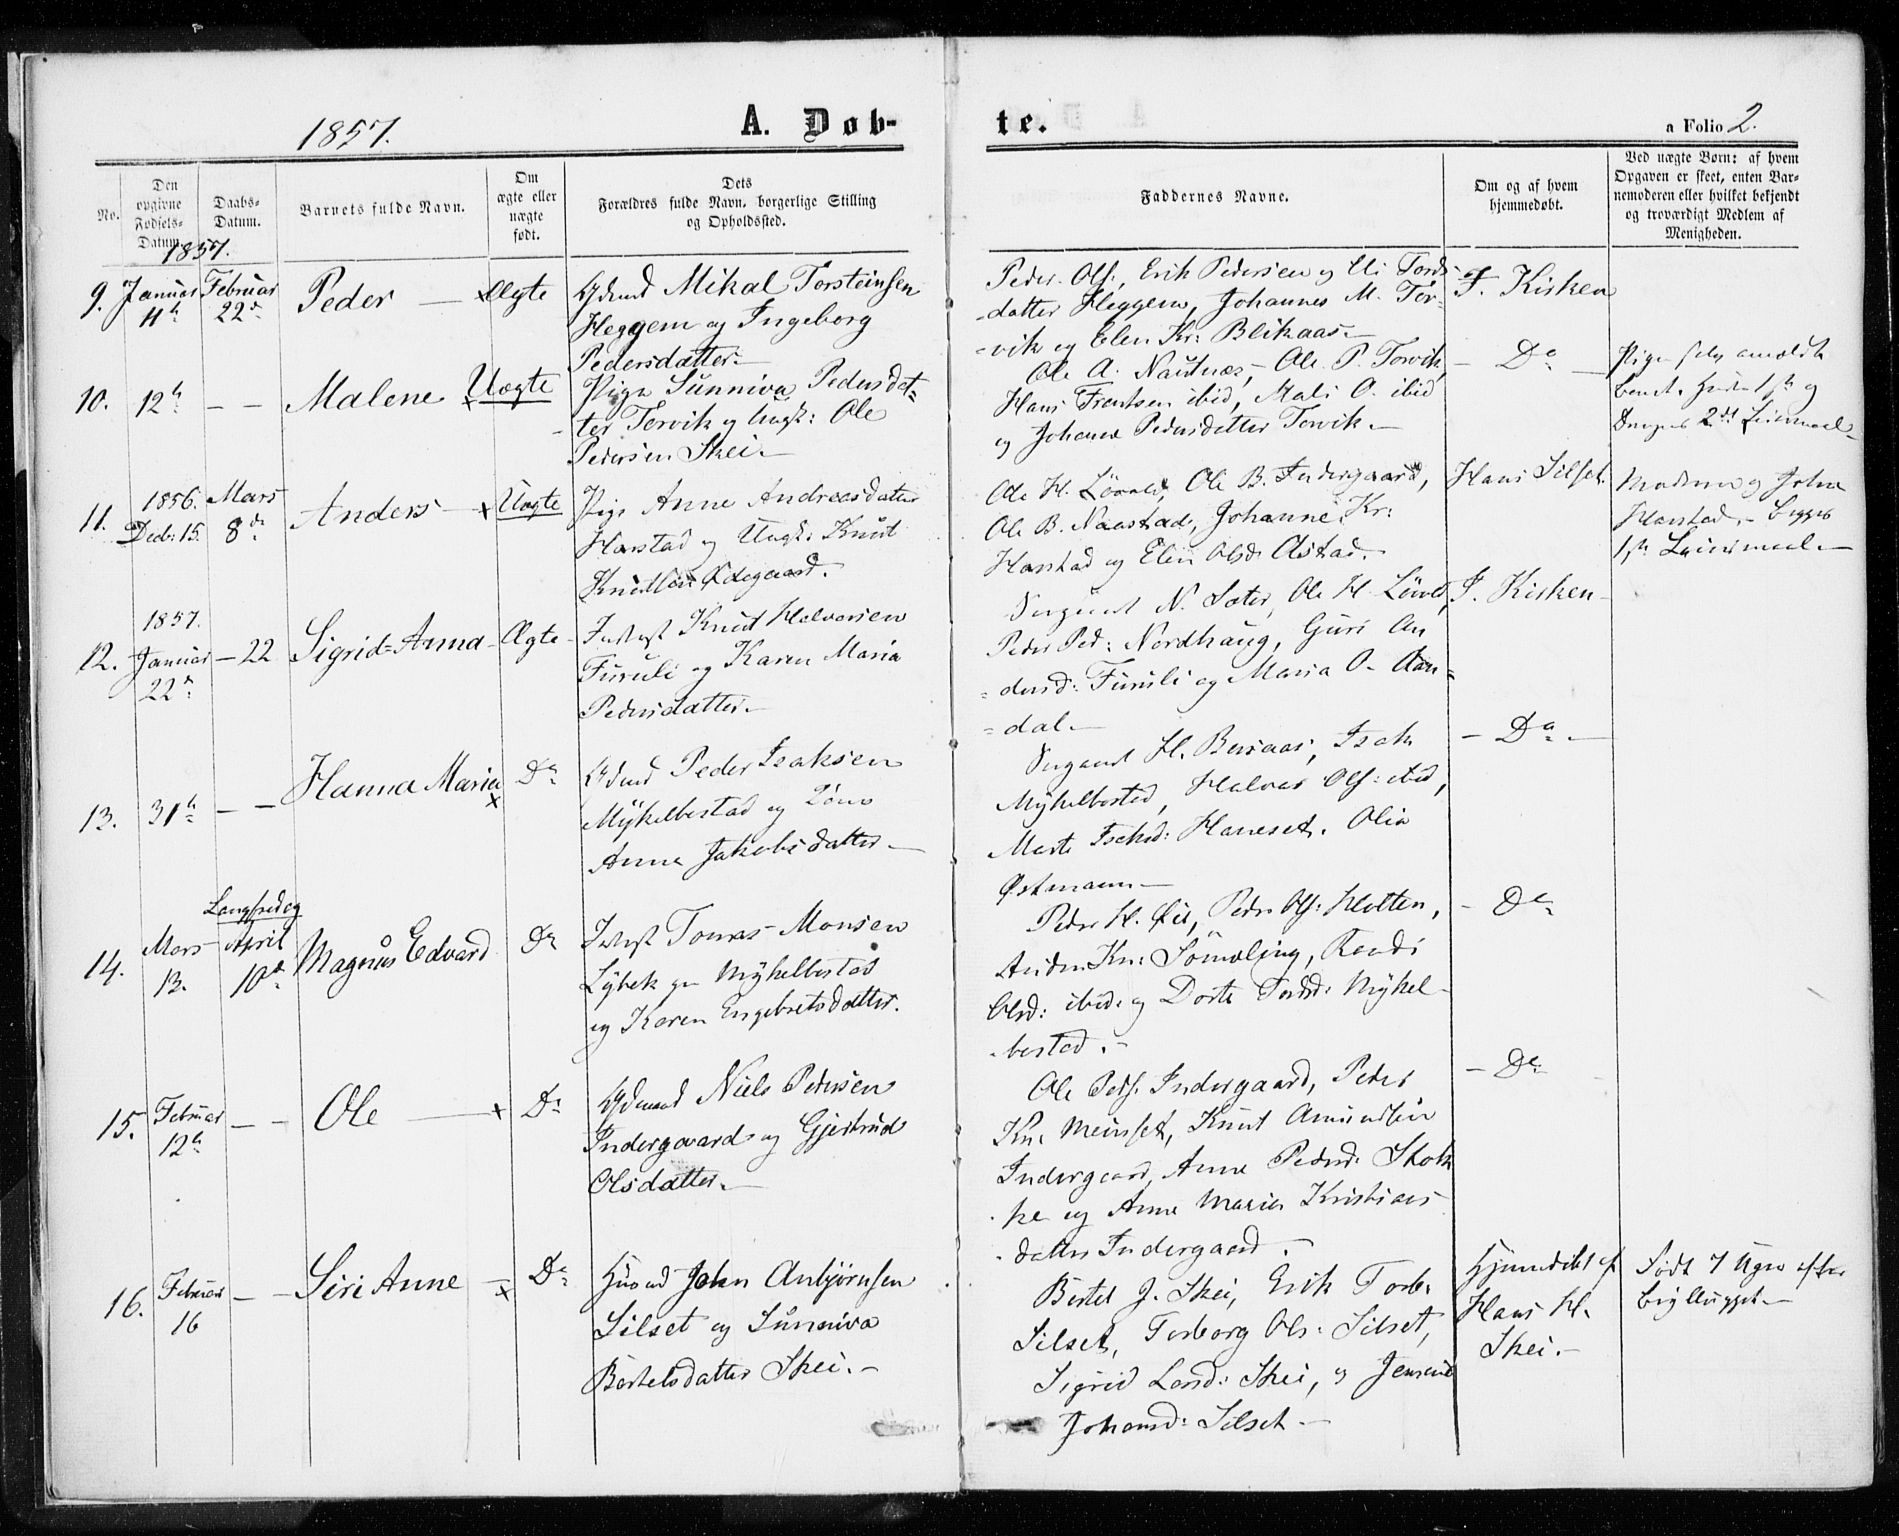 1857.
A. Døb-
te.
a Folio 2.
No.
Den opgivne Fødsels-Datum.
Daabs-Datum.
Barnets fulde Navn.
Om ægte eller uægte født.
Dets
Forældres fulde Navn, borgerlige Stilling
og Opholdssted.
Faddernes Navne.
Om og af hvem
hjemmedøbt.
Ved uægte Børn: af hvem
Opgaven er skeet, enten Bar-
nemoderen eller hvilket bekjendt
og troværdigt Medlem af
Menigheden.
1857.
9. Januar 11te Februar 22de Peder — x Ægte
Gdmd Mikal Torsteinsen
Heggem og Ingeborg
Pedersdatter.—
Peder Ols., Erik Pedersen og Eli Tords
-datter Heggem, Johannes M. Tor-
-vik og Elen Kr: Blikaas.—
I Kirken
10. 12te — — Malene x Uægte
Pige Sunniva Pedersdat-
ter Torvik og Ungk: Ole
Pedersen Skei.—
Ole A. Nautnes, Ole P. Torvik,
Hans Frantsen ibid, Mali O. ibid
og Johanna Pedersdatter Torvik.—
— Do —
Pigen selv anmeldt
11. 1856. Decb: 15. Mars 8de Anders — x Uægte
Pige Anne Andreasdatter
Harstad og Ungk: Knut
Knudsen Ødegaard.
Ole H. Løvold, Ole B. Indergaard,
Ole B. Naastad, Johanne Kr:
Harstad og Elen Olsd: Astad.
Hans Silset.
Moderen og John
Harstad, — begges
1ste Leiermaal.—
12. 1857. Januar 22de — 22 Sigrid-Anna — Ægte
Indst Knut Halvorsen
Furuli og Karen Maria
Pedersdatter.—
Sergeant N. Sæter, Ole H. Løvold,
Peder Ped: Nordhaug, Guri An
-dersd: Furuli og Maria O. Aan-
-dal.—
I. Kirken
13. 31te — — Hanna Maria x Do
Gdmd Peder Isaksen
Myklebostad og Kone
Anne Jakobsdatter —
Sergeant H. Bersaas, Isak
Myklebostad, Halvor Ols: ibid,
Marte Isaksd: Haneset. Olia
Østmann.—
— Do —
14. Mars 13. Langfredag April 10de Magnus Edvard Do
Indst Tomas Monsen
Lybek pa Myklebostad
og Karen Engebretsdatter.
Peder H. Øie, Peder Ols: Holten,
Anders Kn: Sømøling, Randi
Olsd: ibid: og Dorte Tordsd: Mykel-
-bostad.—
— Do
15. Februar 12te — — Ole — x Do
Gdmand Niels Pedersen
Indergaard og Gjertrud
Olsdatter.—
Ole Peds. Indergaard, Peder
Kn: Meinset, Knut Amundsen
Indergaard, Anne Pedersd: Skok
-ke og Anne Maria Kristians
-datter Indergaard.
— Do
16. Februar 16 — — Siri Anne — x Do
Husmd John Anbjørnsen
Silset og Sunniva
Bertelsdatter Skei.—
Bertel J. Skei, Erik Torb:
Silset, Torborg Ols: Silset,
Sigrid Larsd: Skei, og Jensine
Johansd: Silset —
Hjemmedøbt af
Hans H.
Skei.—
Født 7 Uger efter
Brylluppet.—